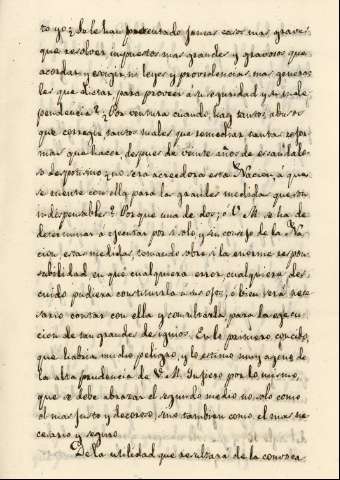 to yo; ¿Se le han presentado jamas casos mas graves
que resolver impuestos mas grandes y gravosos que
acordar y exigir ni leyes y providencias mas genera
les que dictar para proveer á su seguridad y su inde
pendencia? ¿Por ventura cuando hay tantos abusos
que corregir tantos males que remediar, tantas refor
mas que hacer, despues de veinte años de escandalo
so despotismo ¿no será acreedora esta Nacion, á que
se cuente con ella para las grandes medidas que son
indispensables? Porque una de dos; ó V. M. se ha de
determinar a ejecutar por sí solo, y sin consejo de la Na
cion, estas medidas, tomando sobre sí la enorme respon
sabilidad en que cualquiera error, cualquiera des
cuido pudiera constituirla á sus ojos; ó bien será nece
sario contar con ella y consultarla, para la ejecu
cion de tan grandes designios. En lo primero concibo,
que habria mucho peligro, y lo estimo muy ageno de
la alta prudencia de V. M. Infiero por lo mismo,
que se debe abrazar el segundo medio no solo como
el mas justo y decoroso, sino tambien como el mas ne
cesario y seguro.
De la utilidad que resultará de la convoca